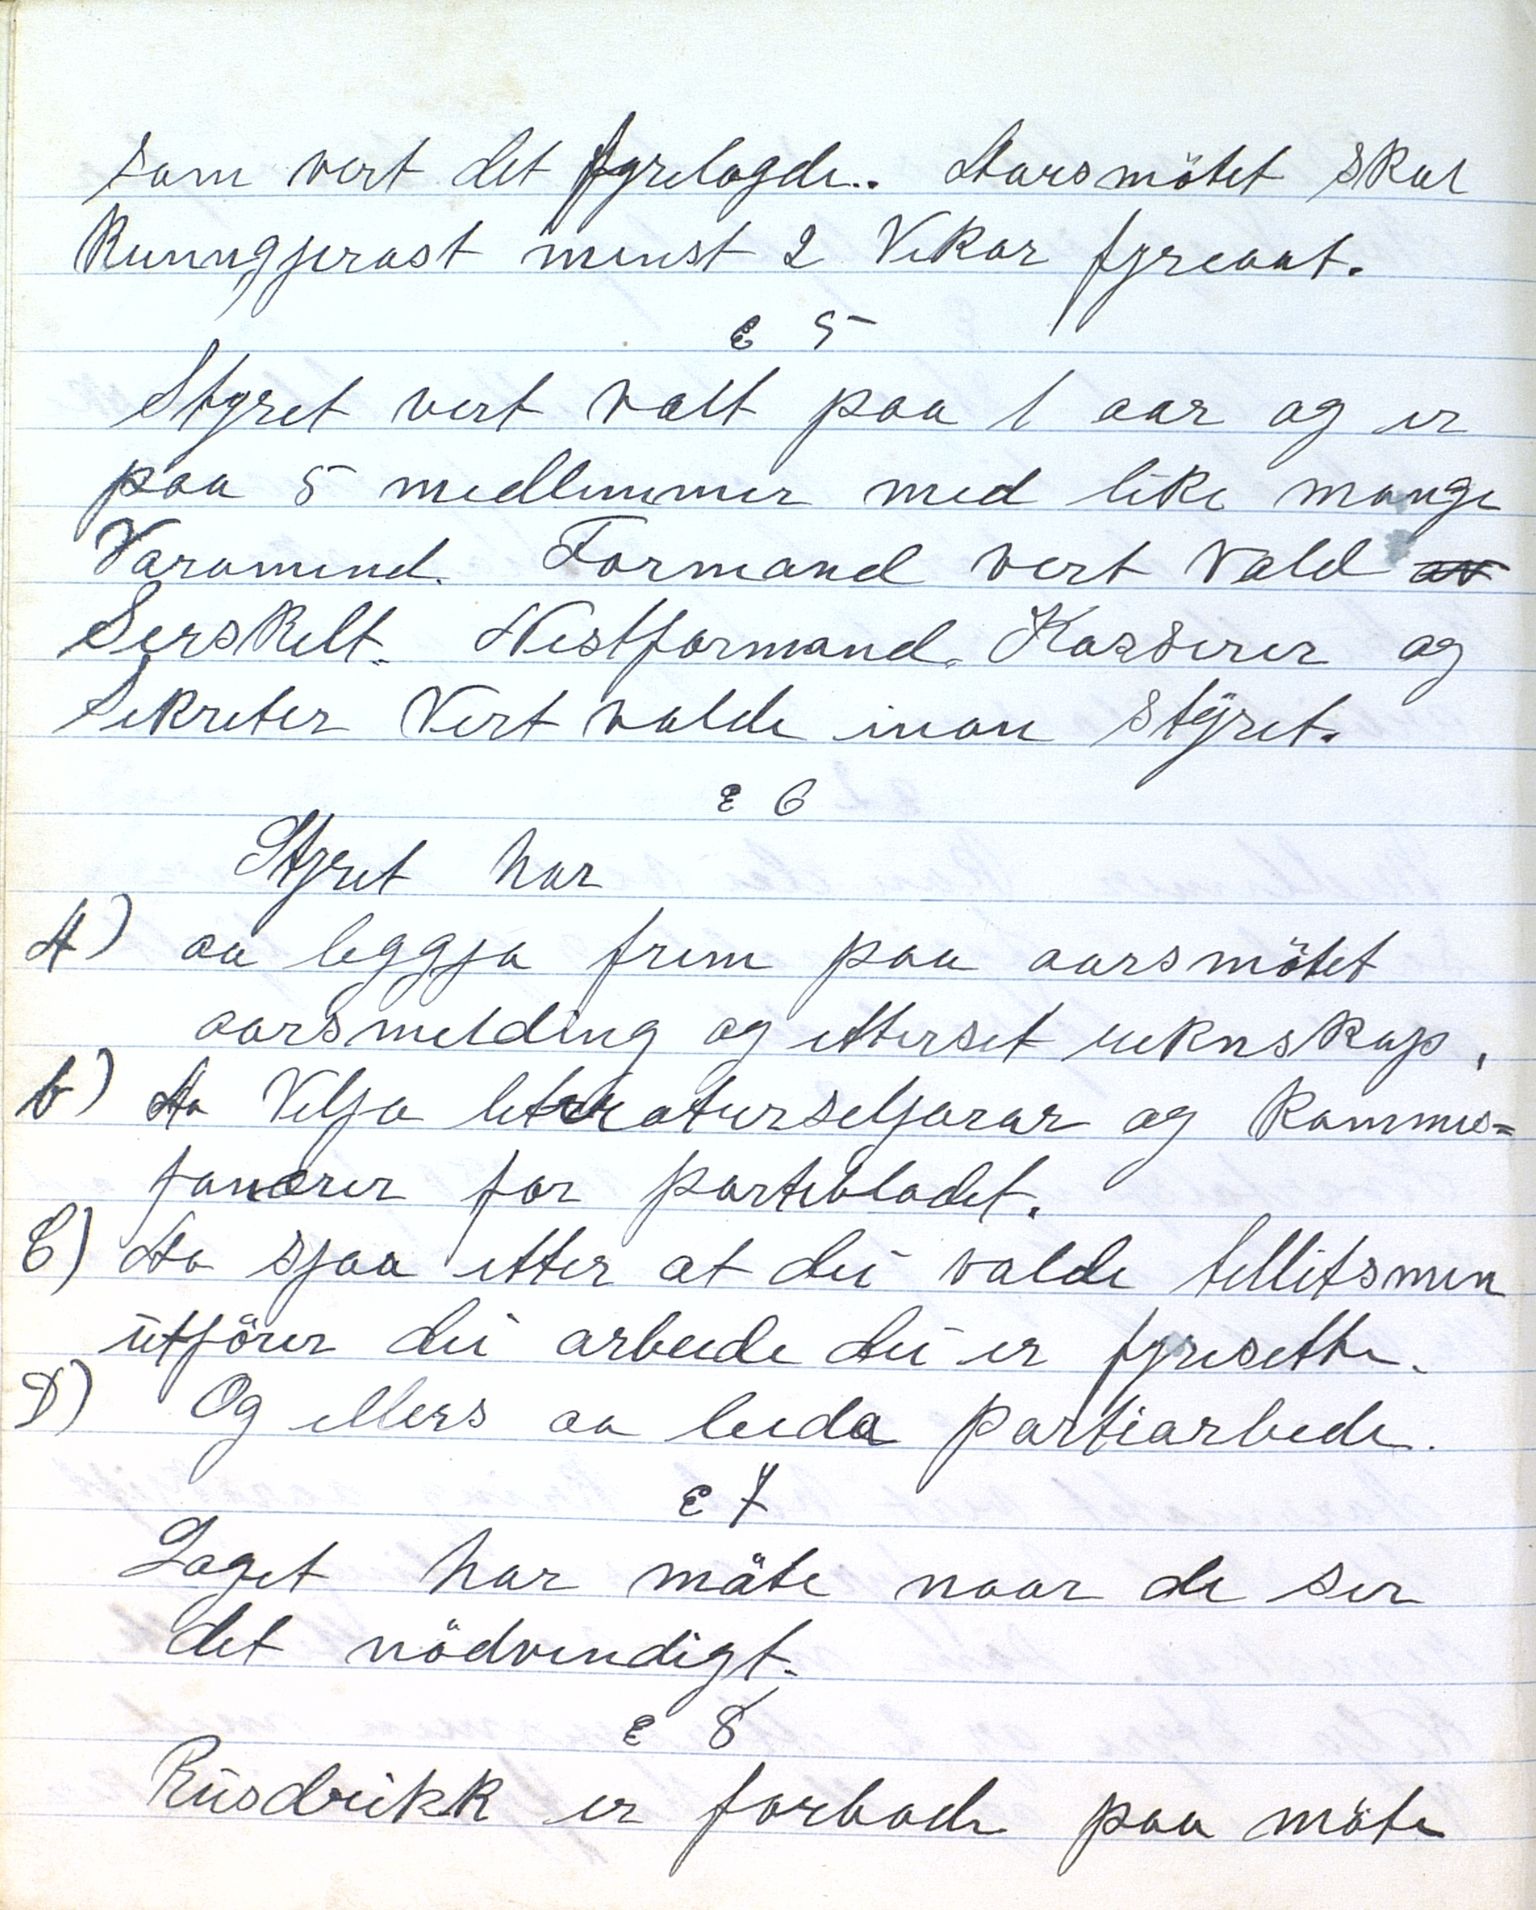 som vert det fyrelagde. Aarsmötet skal
Kunngjerast minst 2 Vekar fyreaat.
§ 5
Styret vert valt paa 1 aar og er
paa 5 medlemmer med like mange
Varamend. Formand vert vald av
Serskelt. Nestformand. Kasserer og
Sekreter Vert valde inan styret.
§ 6
Styret har
A) aa leggja frem paa aarsmötet
aarsmelding og etterset reknskap,
b) Aa Velja literaturseljarar og Kommis-
jonærer for partibladet.
C) Aa sjaa etter at dei valde tillitsmen
utförer dei arbeide dei er fyresette.
D) Og ellers aa leida partiarbeide.
§ 7
Laget har möte naar de ser
det nödvendigt.
§ 8
Rusdrikk er forbode paa möte